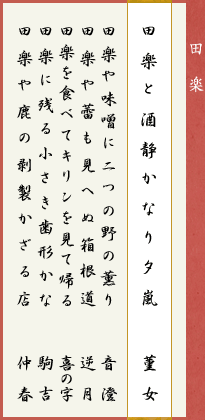 田楽
田楽と酒静かなり夕嵐 菫女
田楽や味噌に二つの野の薫り 音澄
田楽や蕾も見へぬ箱根道 逆月
田楽を食べてキリンを見て帰る 喜の字
田楽に残る小さき歯形かな 駒吉
田楽や鹿の剥製かざる店 仲春